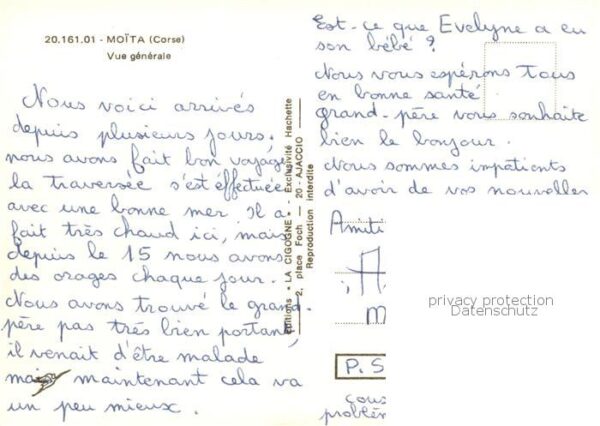 20.161.01 - MOÏTA (Corse)
Vue générale
Nous voici arrivés
depuis plusieurs jours.
nous avons fait bon voyage,
la traversée s'est effectuée
avec une bonne mer. Il a
fait très chaud ici, mais
depuis le 15 nous avons
des orages chaque jour.
Nous avons trouvé le grand-
père pas très bien portant,
il venait d'être malade
mais maintenant cela va
un peu mieux.
Editions "LA CIGOGNE" - Exclusivité Hachette
2, place Foch — 20 - AJACCIO
Reproduction interdite
Est-ce que Evelyne a eu
son bébé ?
Nous vous espérons tous
en bonne santé.
grand-père vous souhaite
bien le bonjour.
Nous sommes impatients
d'avoir de vos nouvelles
Amiti
P.S
problèm
privacy protection
Datenschutz